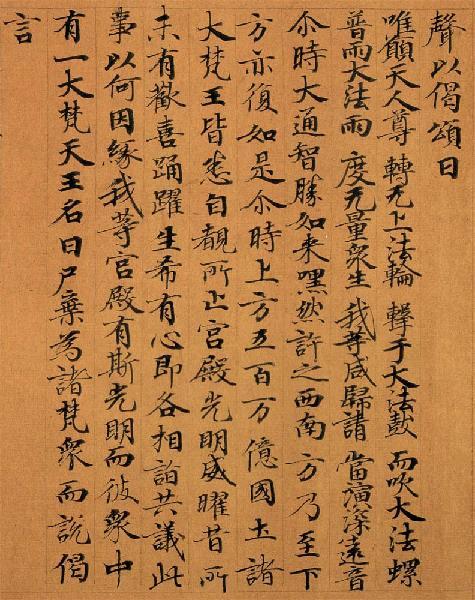 聲以偈頌曰
唯願天人尊 轉无上法輪 擊于大法鼓 而吹大法螺
普雨大法雨 度无量衆生 我等咸歸請 當演深遠音
尒時大通智勝如來嘿然許之西南方乃至下
方亦復如是尒時上方五百万億國土諸
大梵王皆悉自覩所止宮殿光明威曜昔所
未有歡喜踊躍生希有心即各相詣共議此
事以何因緣我等宮殿有斯光明而彼衆中
有一大梵天王名曰尸棄為諸梵衆而說偈
言